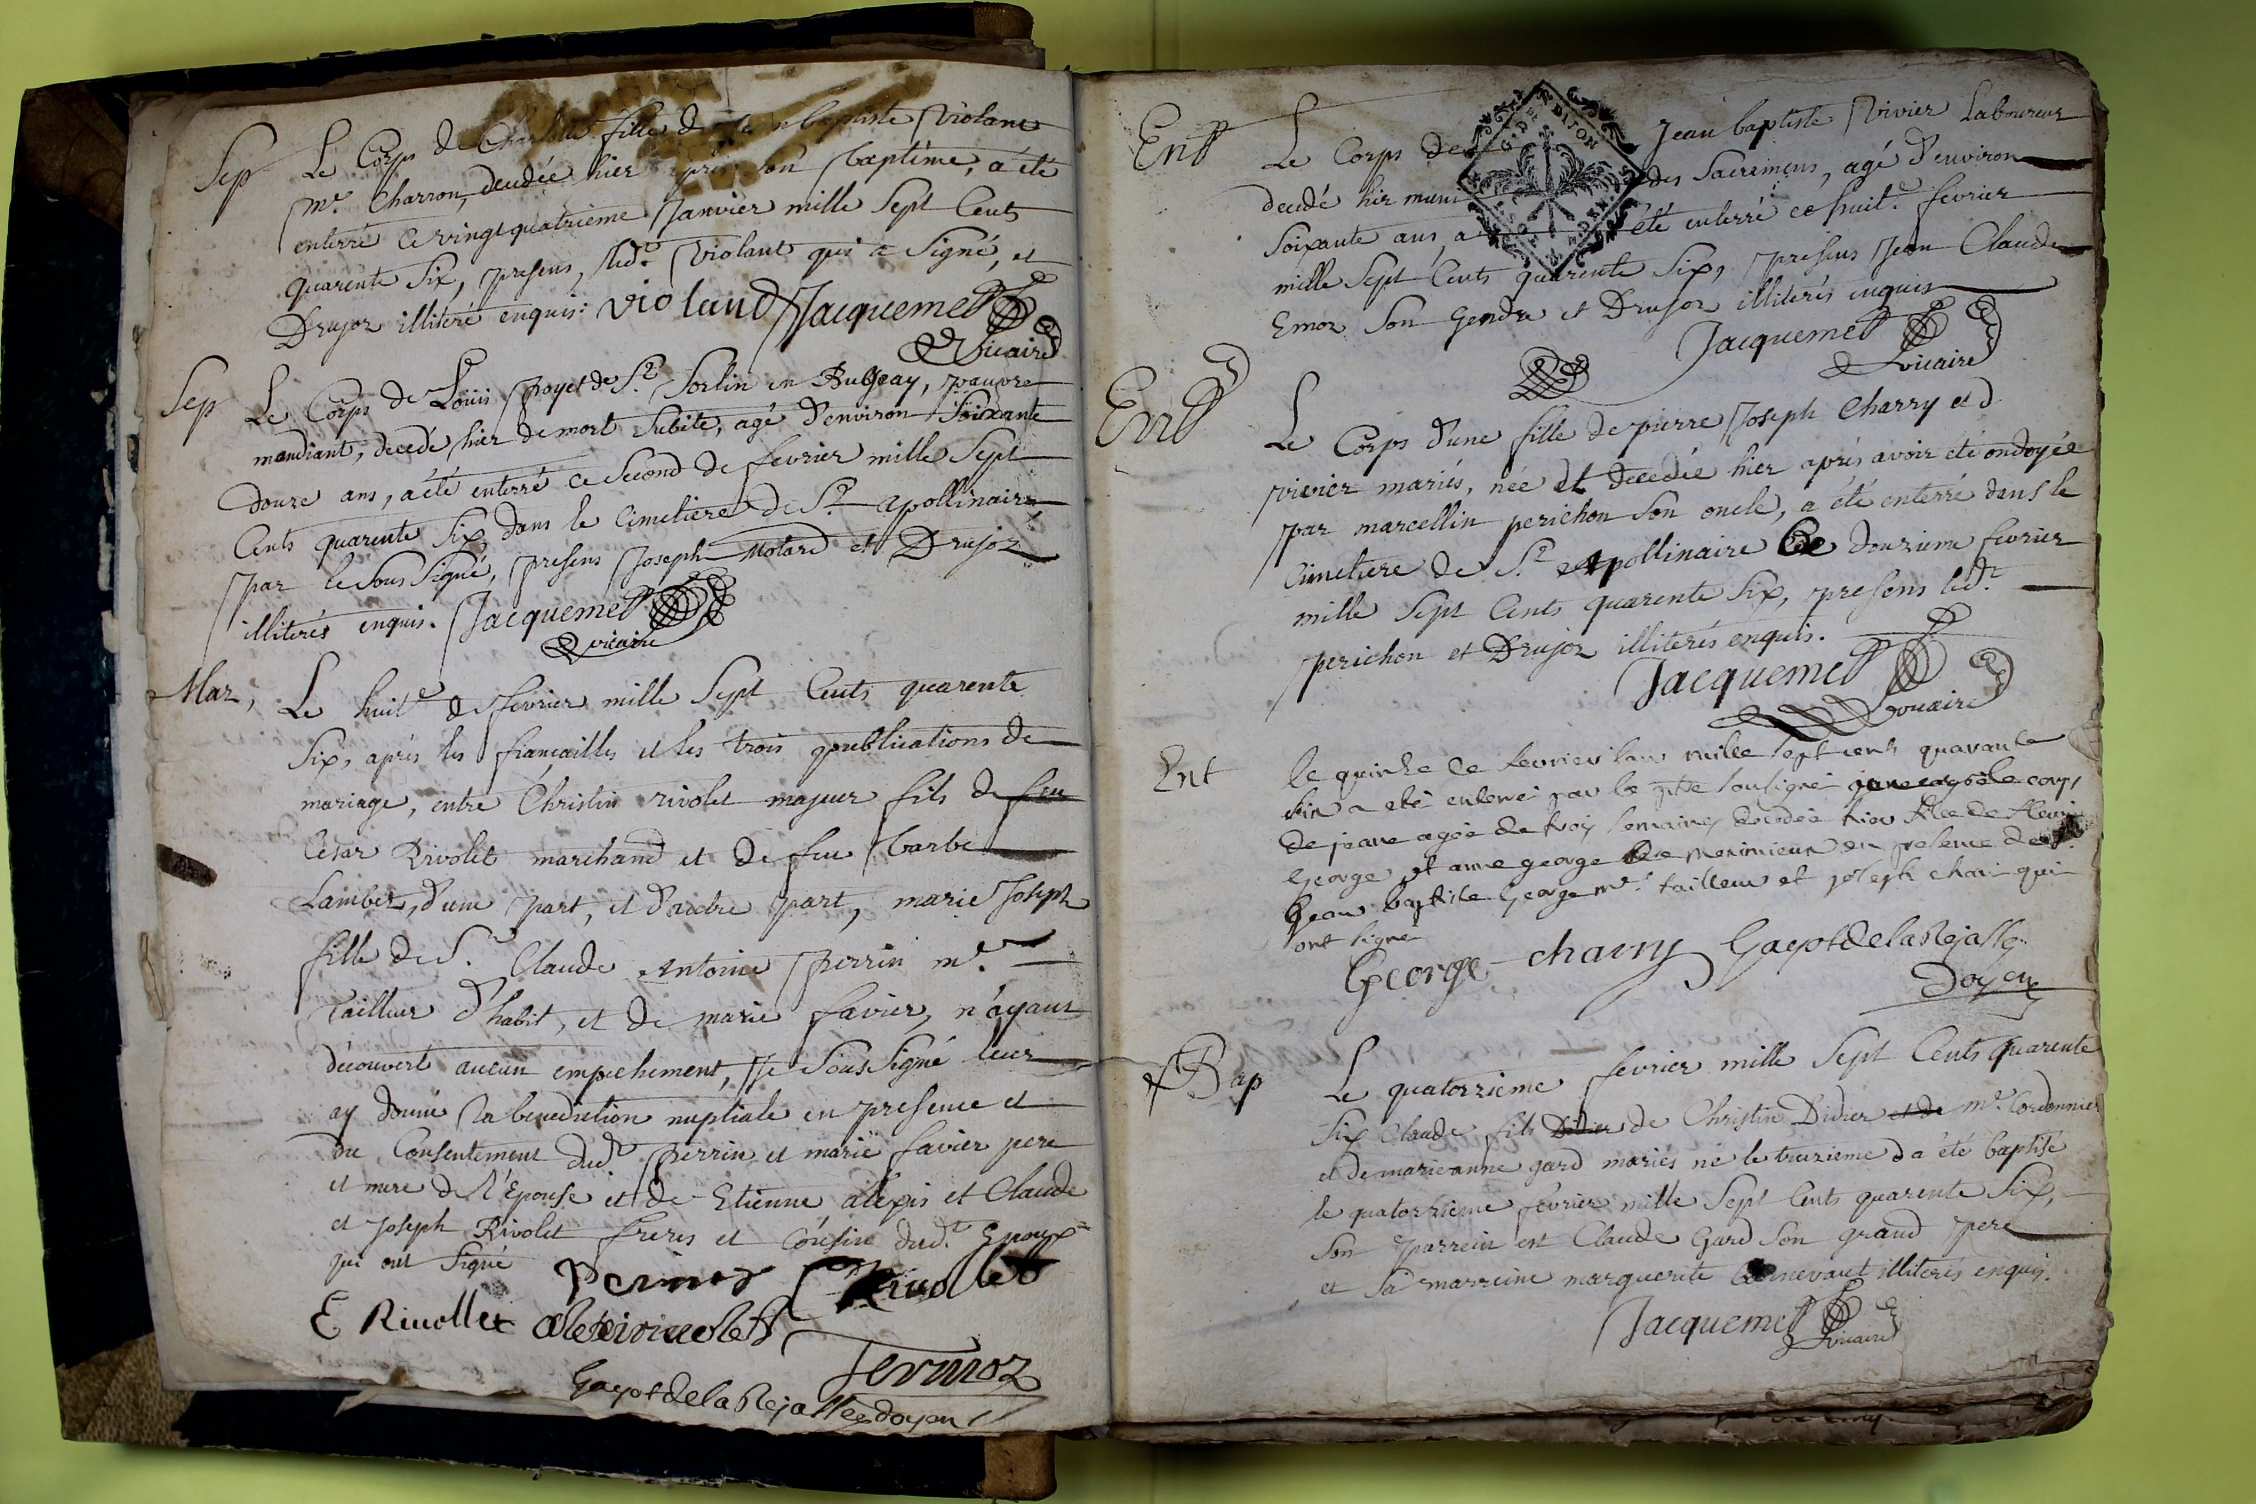 Sep Le Corps de Charlotte fille de Jean baptiste Violant
me. Charron, decedée hier après son baptême, a été
enterré ce vingt quatrieme Janvier mille Sept Cents
quarente Six, presens, led.t Violant qui a Signé, et
Drujon illitéré enquis: violand Jacquemet
vicaire
Sep Le Corps de Loüis poyet de St. Sorlin en Bugeay, pauvre
mandiant, decedé hier de mort Subite, agé d'environ Soixante
douze ans, a été enterré ce Second de fevrier mille Sept
Cents quarente Six, dans le Cimetiere de St. apollinaire
par le Sous Signé, presens Joseph Molard et Drujon
illiterés enquis. Jacquemet
vicaire
Mar, Le huit.e de fevrier mille Sept Cents quarente
Six, après les fiancailles et les trois publications de
mariage, entre Christin rivolet majeur fils de feu
Cesar Rivolet marchand et de feu barbe
Lambert, d'une part, et d'autre part, marie Joseph
fille de Sr. Claude Antoine perrin me.
Tailleur d'habit, et de marie favier, n'ayant
découvert aucun empechement, Je Sous Signé leur
ay donné la benediction nuptiale en presence et
du Consentement dud.t perrin et marie favier pere
et mere de l'Epouse et de Etienne alexis et Claude
et Joseph Rivolet freres et Cousin dud.t Epoux
qui ont Signé
Rivollet
E Rivollet
Jermoz
Gayot de la Rejasse doyen
Ent Le Corps de Jean baptiste Vivier Laboureur
decedé hier muni des Sacremens, agé d'environ
Soixante ans, a été enterré ce huit.e fevrier
mille Sept Cents quarente Six, presens Jean Claude
Emoz Son Gendre et Drujon illiterés enquis
Jacquemet
vicaire
Ent Le Corps d'une fille de pierre Joseph Charry et d
vivier mariés, née et decedée hier après avoir été ondoyée
par marcellin perichon Son oncle, a été enterré dans le
Cimetiere de St. Apollinaire Ce douzieme fevrier
mille Sept Cents quarente Six, presens led.t
perichon et Drujon illiterés enquis.
Jacquemet
vicaire
Ent le quinze de fevrier lan mille sept cent quarante
six a eté enterré par le ptre soussigné le corps
de jeane agée de troys semaines decedée hier fille de
George et anne george de meximieux en presence de
jean baptiste George me. tailleur et joseph chari qui
ont signé
George charry Gayot de la Rejasse
Doyen
Bap Le quatorzieme fevrier mille Sept Cents quarente
Six Claude fils Didier de Christin Didier et de me. Cordonnier
et de marieanne gard mariés né le treizieme d a été baptisé
le quatorzieme fevrier mille Sept Cents quarente Six,
Son parrein est Claude Gard Son grand pere
et Sa marreine marguerite illiterés enquis.
Jacquemet
vicaire